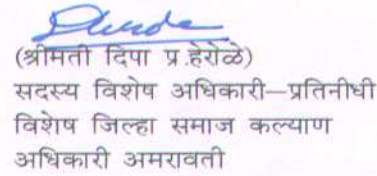 (श्रीमती दिपा प्र.हेरोळे)
सदस्य विशेष अधिकारी–प्रतिनीधी
विशेष जिल्हा समाज कल्याण
अधिकारी अमरावती